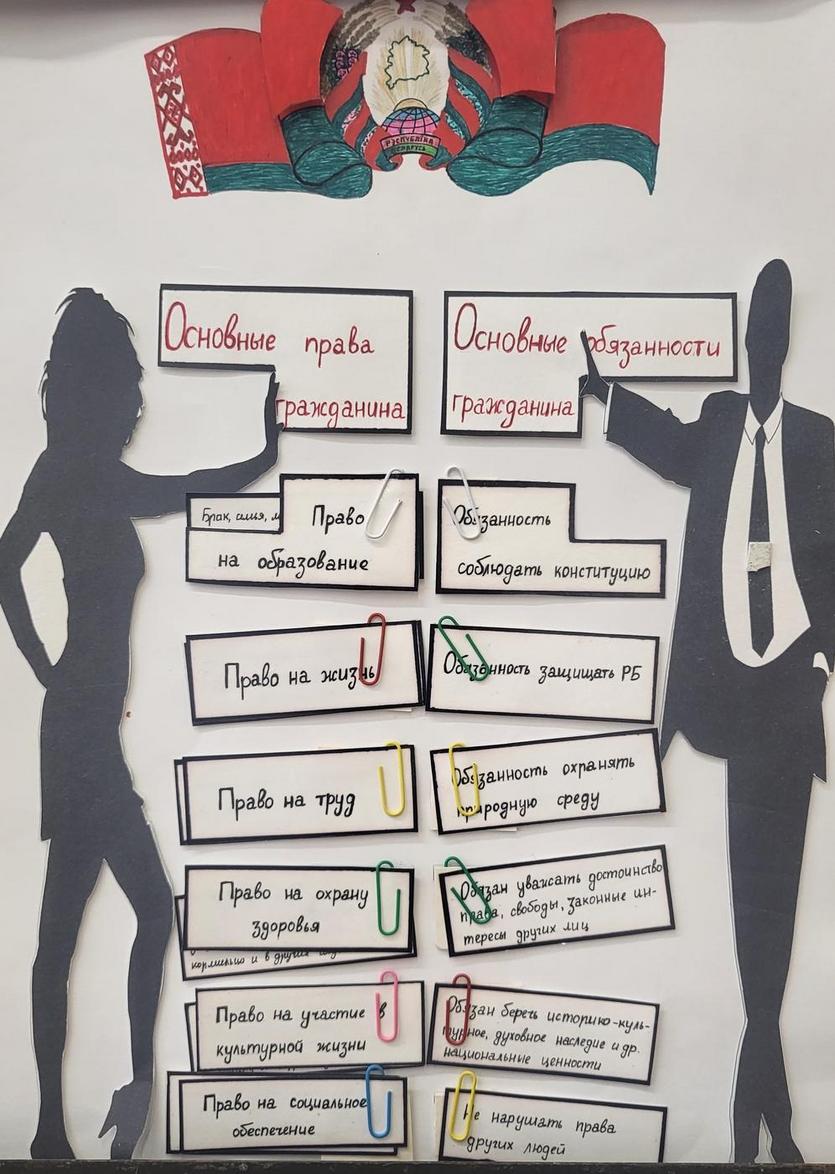 РЭСПУБЛІКА
БЕЛАРУСЬ
Основные права
гражданина
Основные обязанности
гражданина
Брак, семья, м
Право
на образование
Право на жизнь
Право на труд
Право на охрану
здоровья
кормильца и в других
Право на участие в
культурной жизни
Право на социальное
обеспечение
Обязанность
соблюдать конституцию
Обязанность защищать РБ
Обязанность охранять
природную среду
Обязан уважать достоинство
права, свободы, законные ин-
тересы других лиц
Обязан беречь историко-куль-
турное, духовное наследие и др.
национальные ценности
Не нарушать права
других людей